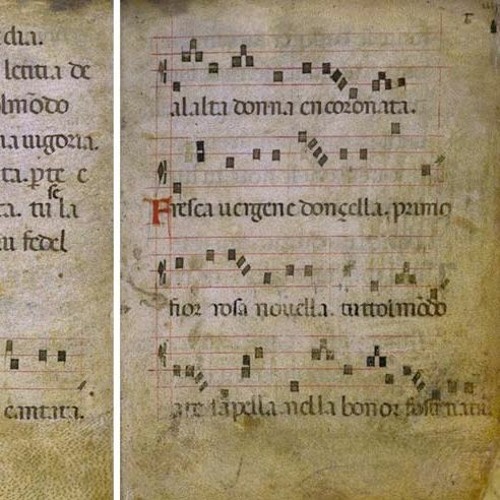 dia.
letitia de
olmōdo
na uigoria.
ta. ꝑte e
ta. tu se la
fedel
cantata.
alalta donna encoronata.
Fresca uergene donçella. primo
fior rosa nouella. tuttolmōdo
ate sapella. nella bonor fosti